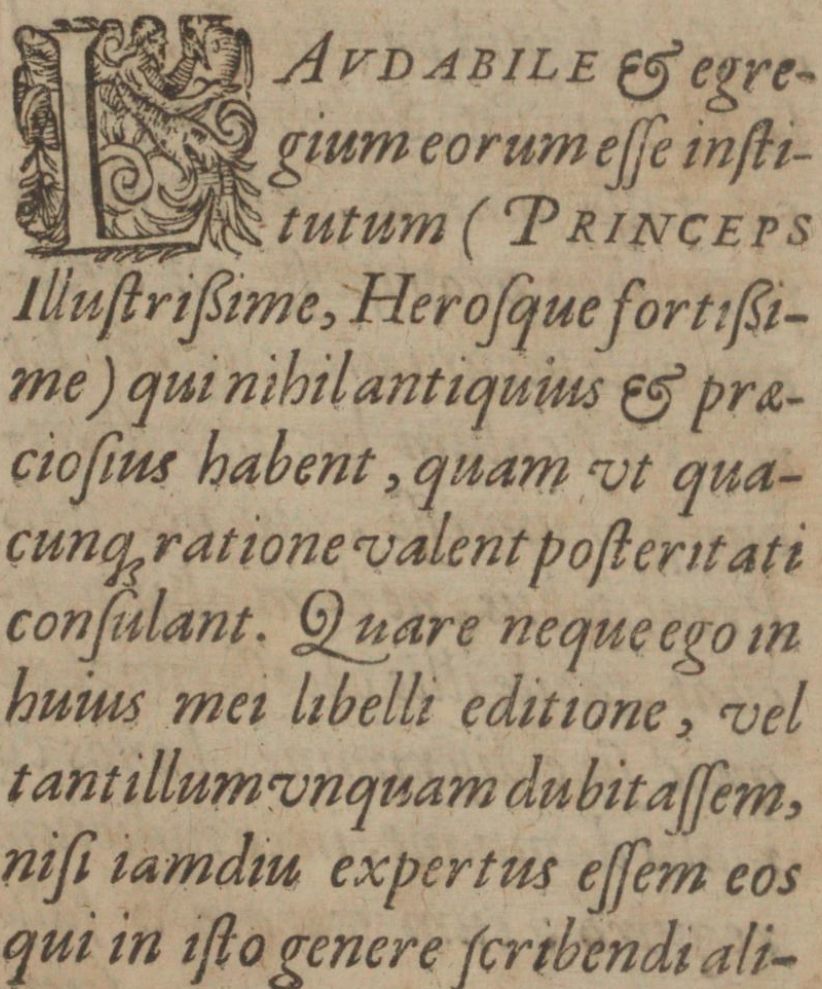 LAVDABILE & egre-
gium eorum eſſe inſti-
tutum ( PRINCEPS
Illuſtriſſime, Heroſque fortiſſi-
me ) qui nihil antiquius & præ-
cioſius habent, quam vt qua-
cunq; ratione valent poſteritati
conſulant. Quare neque ego in
huius mei libelli editione, vel
tantillum vnquam dubitaſſem,
niſi iamdiu expertus eſſem eos
qui in iſto genere ſcribendi ali-